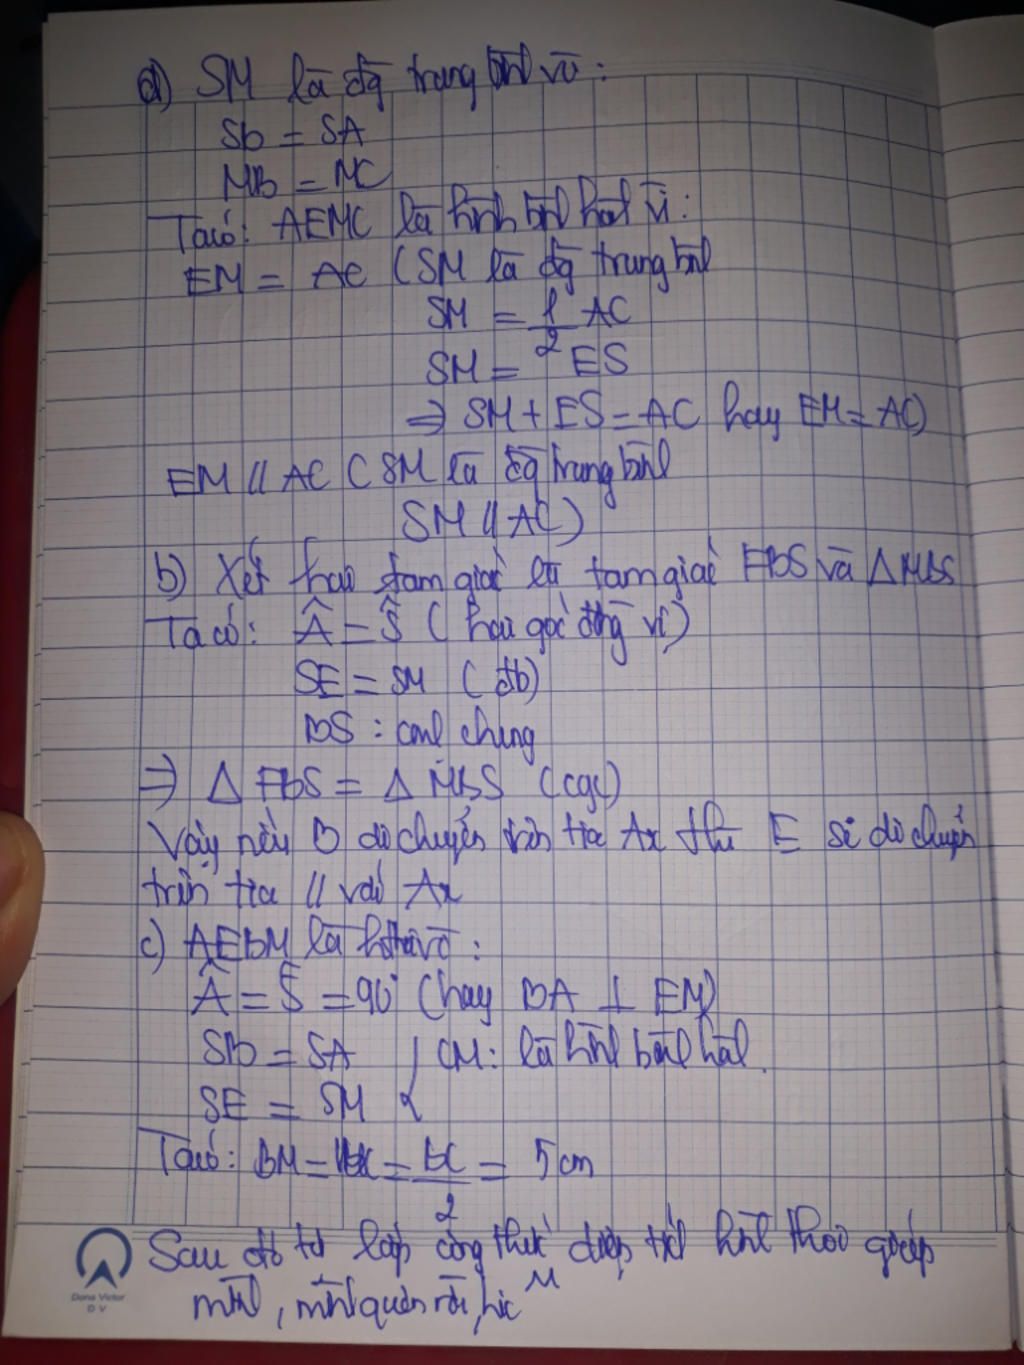 a) SM là đg trung bình vì:
SB = SA
MB = MC
Ta có: AEMC là hình bình hành vì:
EM = AC (SM là đg trung bình
SM = 1/2 AC
SM = ES
=> SM + ES = AC hay EM = AC)
EM // AC (SM là đg trung bình
SM // AC)
b) Xét hai tam giác là tam giác EBS và Δ MBS
Ta có: Â = Ŝ (hai góc đồng vị)
SE = SM (đb)
BS : cạnh chung
=> Δ EBS = Δ MBS (cgc)
Vậy nếu B di chuyển trên tia Ax thì E sẽ di chuyển
trên tia // với Ax
c) AEBM là hthoi vì:
Â = Ŝ = 90° (hay BA ⊥ EM)
SB = SA } CM: là hình bình hành.
SE = SM
Ta có: BM = = BC/2 = 5 cm
Sau đó tự lập công thức diện tích hình thoi giúp
mình, mình quên rồi, hic
Dona Victor
D V